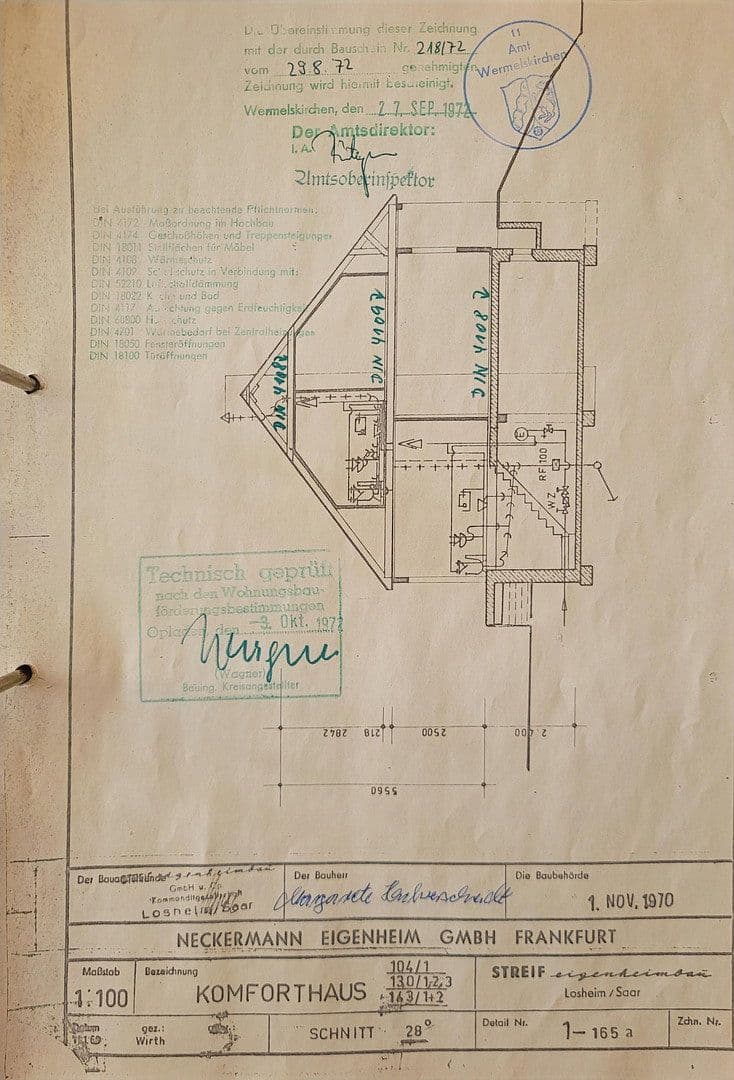 Die Übereinstimmung dieser Zeichnung
mit der durch Bauschein Nr. 218/72
vom 29.8.72 genehmigten
Zeichnung wird hiermit bescheinigt.
Wermelskirchen, den 27. SEP. 1972
Der Amtsdirektor:
I. A.
Amtsoberinspektor
Amt
Wermelskirchen
Bei Ausführung zu beachtende Pflichtnormen:
DIN 4172 Maßordnung im Hochbau
DIN 4174 Geschoßhöhen und Treppensteigungen
DIN 18011 Stellflächen für Möbel
DIN 4108 Wärmeschutz
DIN 4109 Schallschutz in Verbindung mit:
DIN 52210 Luftschalldämmung
DIN 18022 Küche und Bad
DIN 4117 Abdichtung gegen Erdfeuchtigkeit
DIN 68800 Holzschutz
DIN 4701 Wärmebedarf bei Zentralheizungen
DIN 18050 Fensteröffnungen
DIN 18100 Türöffnungen
DIN 4108
DIN 4109
DIN 4108
E
RF 100
WZ
Technisch geprüft
nach den Wohnungsbau-
förderungsbestimmungen
Opladen, den -3. Okt. 1972
Wagner
(Wagner)
Bauing. Kreisangestellter
2842 218 2500 2400
5560
Der Bauantragskunde
GmbH u. Co
Kommanditgesellschaft
Losheim/Saar
Der Bauherr
Margarete
Die Baubehörde
1. NOV. 1970
NECKERMANN EIGENHEIM GMBH FRANKFURT
Maßstab
1:100
Bezeichnung
KOMFORTHAUS
104/1
130/1,2,3
143/1+2
STREIF eigenheimbau
Losheim / Saar
Datum
gez.:
Wirth
SCHNITT 28°
Detail Nr.
1-165 a
Zchn. Nr.